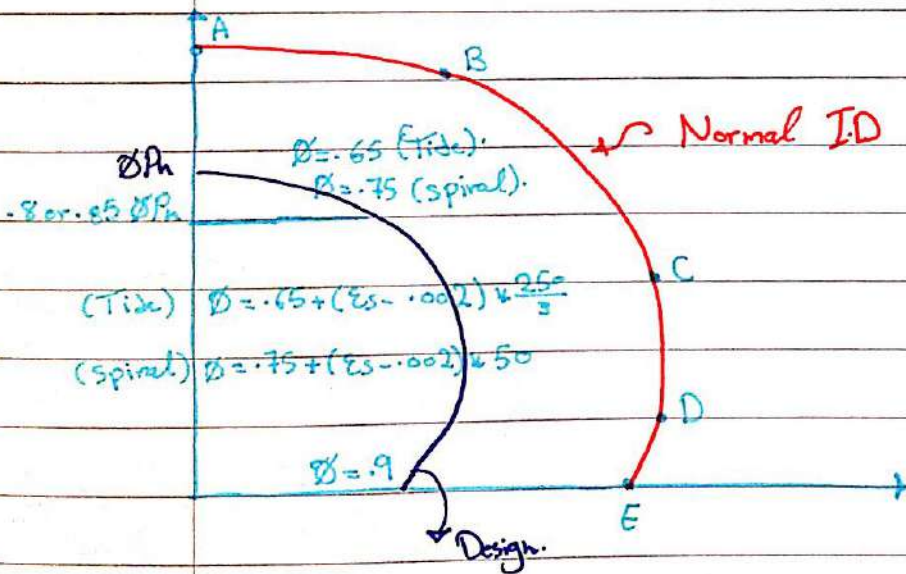 A
B
Normal I.D
ØPn
Ø=.65 (Tide).
Ø=.75 (spiral).
.8 or .85 ØPn
C
(Tide) Ø=.65+(εs-.002)*250/3
(spiral) Ø=.75+(εs-.002)*50
D
Ø=.9
E
Design.